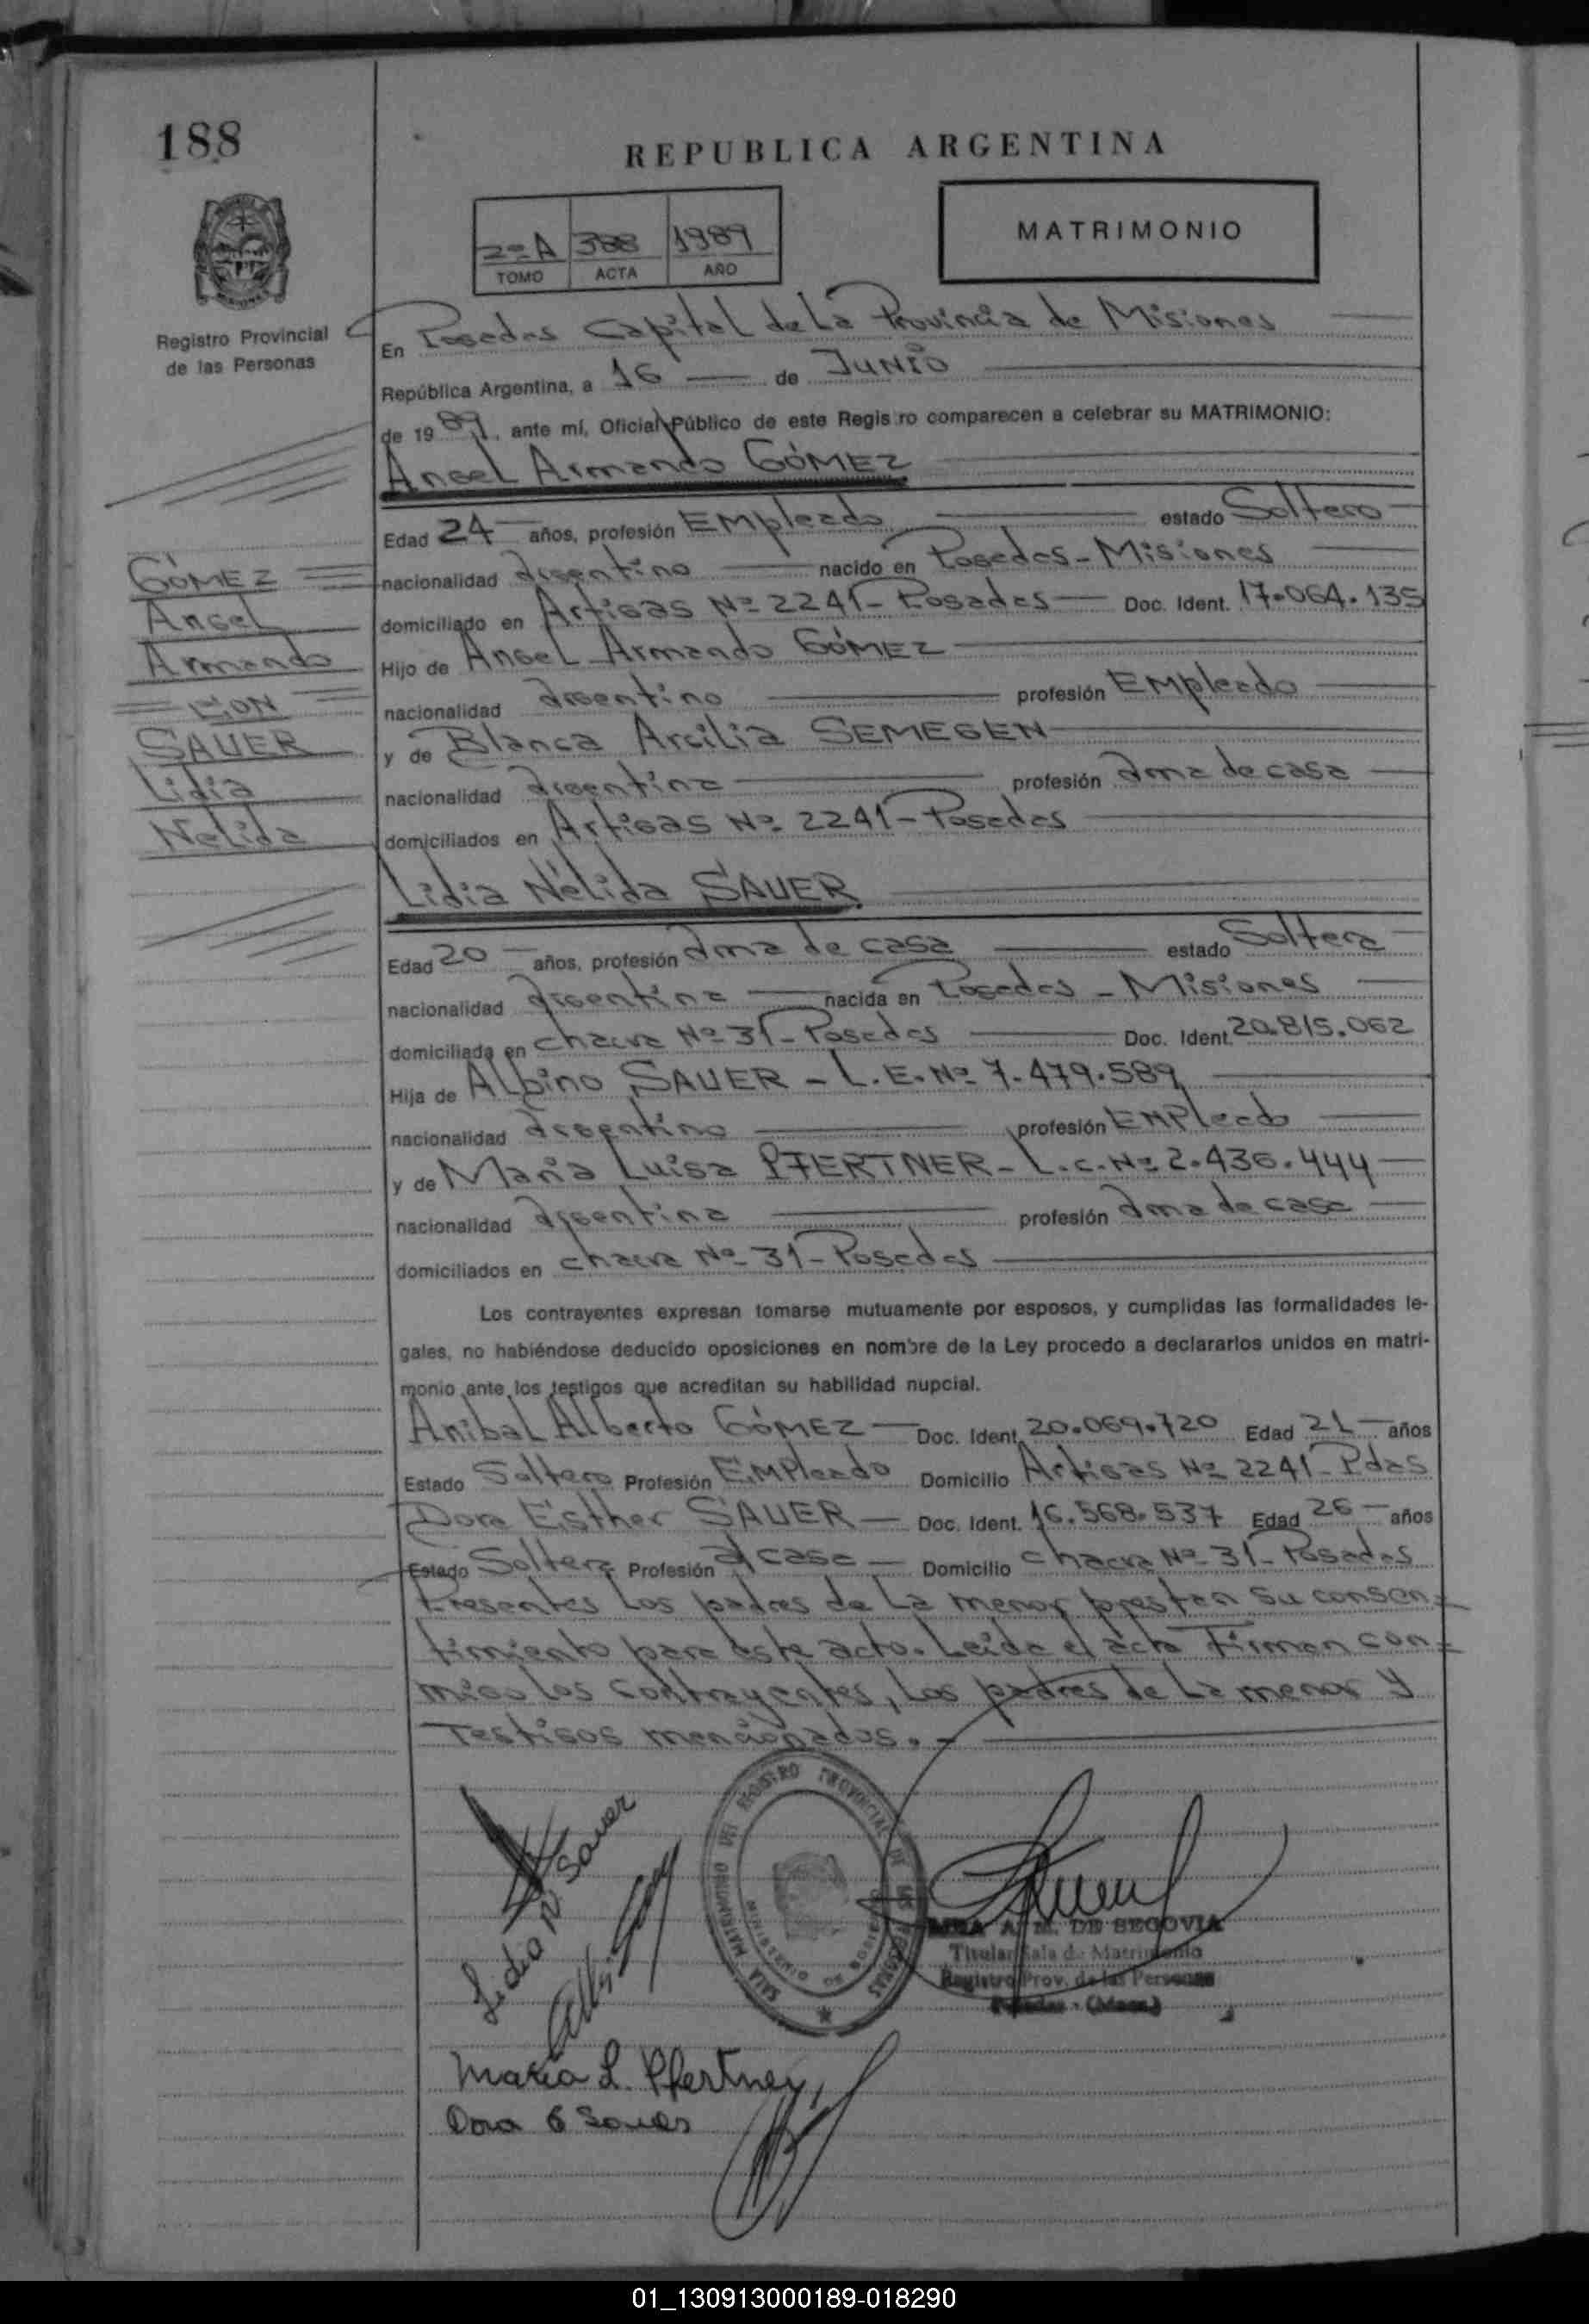 188
REPUBLICA ARGENTINA
2º A 388 1989
TOMO ACTA AÑO
MATRIMONIO
Registro Provincial
de las Personas
En Posadas Capital de La Provincia de Misiones
República Argentina, a 16 de JUNIO
de 1989, ante mí, Oficial Público de este Registro comparecen a celebrar su MATRIMONIO:
Angel Armando GÓMEZ
Edad 24 años, profesión EMpleado estado Soltero
nacionalidad argentino nacido en Posadas - Misiones
domiciliado en Artigas Nº 2241 - Posadas Doc. Ident. 17.064.135
Hijo de Angel Armando GÓMEZ
nacionalidad argentino profesión EMpleado
y de Blanca Arcilia SEMEGEN
nacionalidad argentina profesión ama de casa
domiciliados en Artigas Nº 2241 - Posadas
GÓMEZ
Angel
Armando
CON
SAUER
Lidia
Nelida
Lidia Nélida SAUER
Edad 20 años, profesión ama de casa estado Soltera
nacionalidad argentina nacida en Posadas - Misiones
domiciliada en chacra Nº 31 - Posadas Doc. Ident. 20.815.062
Hija de Albino SAUER - L.E. Nº 7.479.589
nacionalidad argentino profesión EMPleado
y de María Luisa PFERTNER - L.C. Nº 2.436.444
nacionalidad argentina profesión ama de casa
domiciliados en chacra Nº 31 - Posadas
Los contrayentes expresan tomarse mutuamente por esposos, y cumplidas las formalidades le-
gales, no habiéndose deducido oposiciones en nombre de la Ley procedo a declararlos unidos en matri-
monio ante los testigos que acreditan su habilidad nupcial.
Anibal Alberto GÓMEZ Doc. Ident. 20.069.720 Edad 21 años
Estado Soltero Profesión EMPleado Domicilio Artigas Nº 2241 - Pdas
Dora Esther SAUER Doc. Ident. 16.568.537 Edad 26 años
Estado Soltera Profesión a/ casa Domicilio chacra Nº 31 - Posadas
Presentes Los padres de La menor prestan su consen=
timiento para este acto. Leída el acta Firman con=
migo los contrayentes, Los padres de La menor y
Testigos mencionados. -
Lidia N Sauer
A. M. DE SEGOVIA
Titular Sala de Matrimonio
Registro Prov. de las Personas
Posadas - (Mnes.)
SALA MATRIMONIO DEL REGISTRO PROVINCIAL DE LAS PERSONAS
María L. Pfertner
Dora E Sauer
01_130913000189-018290